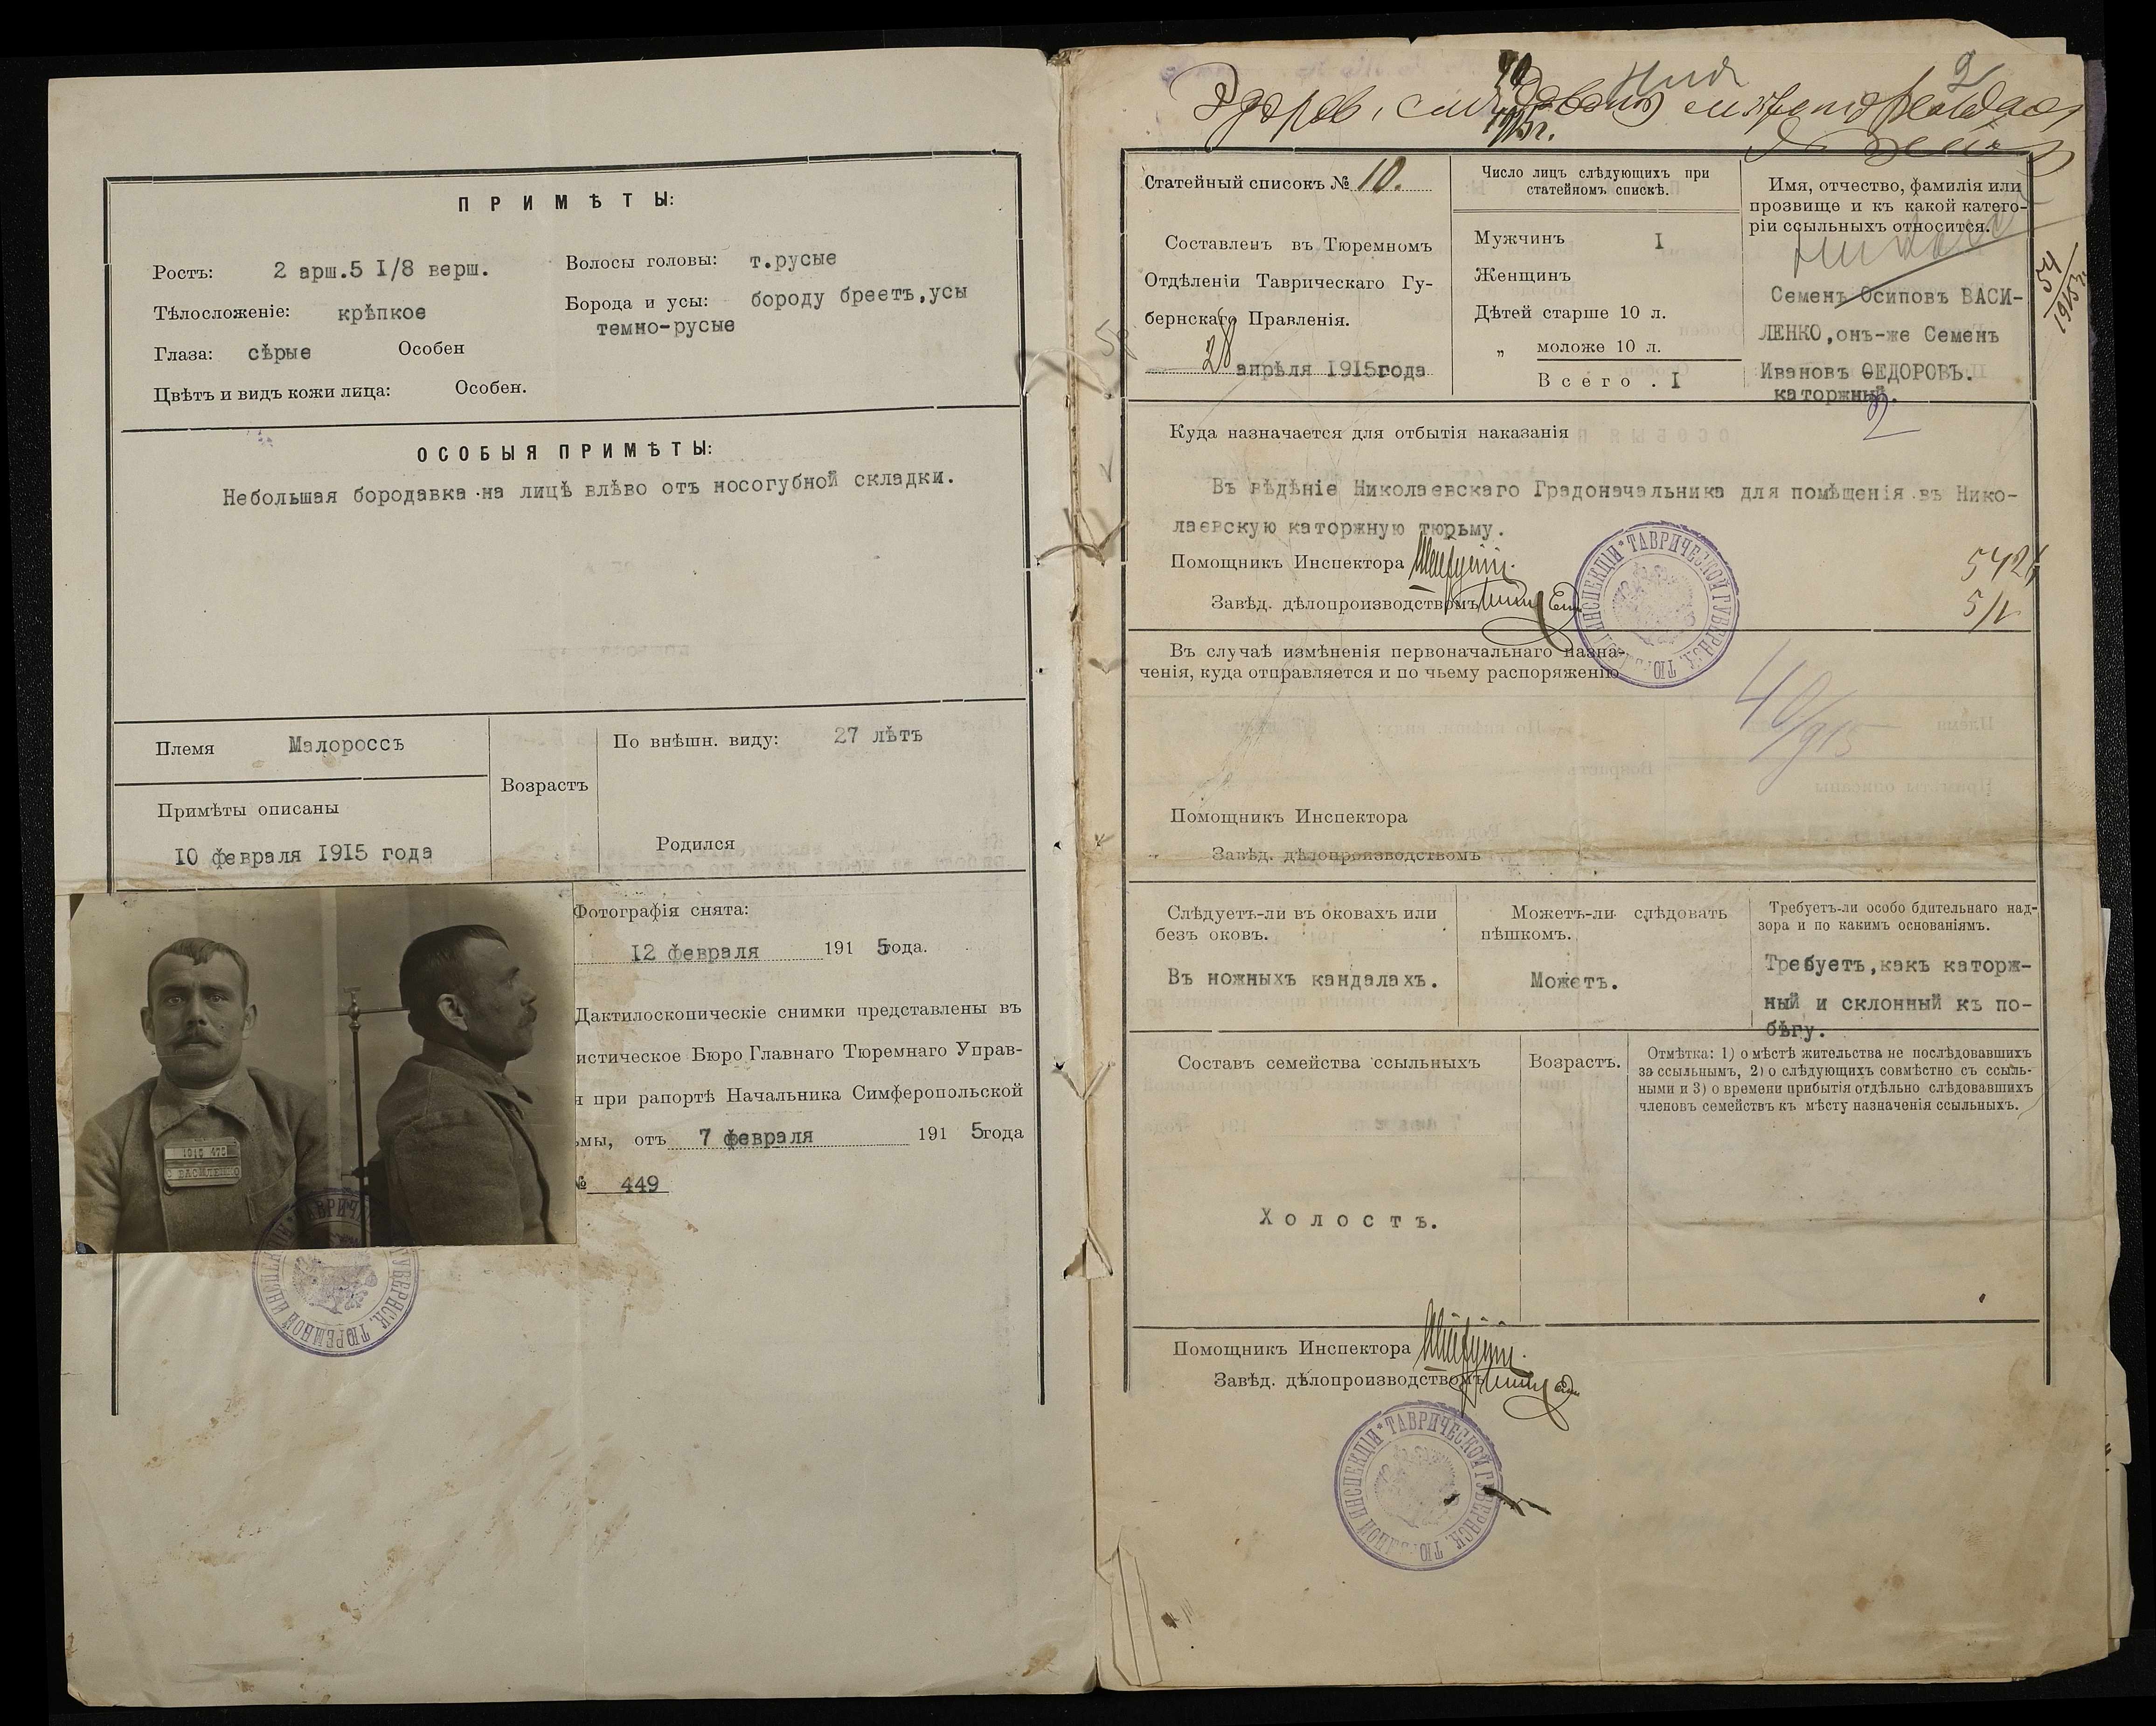 П Р И М Ѣ Т Ы:
Ростъ: 2 арш.5 I/8 верш.
Волосы головы: т.русые
Тѣлосложеніе: крѣпкое
Борода и усы: бороду бреетъ,усы
темно-русые
Глаза: сѣрые Особен
Цвѣтъ и видъ кожи лица: Особен.
ОСОБЫЯ ПРИМѢТЫ:
Небольшая бородавка на лицѣ влѣво отъ носогубной складки.
Племя Малороссъ
Возрастъ
По внѣшн. виду: 27 лѣтъ
Родился
Примѣты описаны
10 февраля 1915 года
Фотографія снята:
12 февраля 1915года.
Дактилоскопическіе снимки представлены въ
истическое Бюро Главнаго Тюремнаго Управ-
при рапортѣ Начальника Симферопольской
мы, отъ 7 февраля 1915года
№ 449
Статейный списокъ № 10.
Составленъ въ Тюремномъ
Отдѣленіи Таврическаго Гу-
бернскаго Правленія.
28 апрѣля 1915года
Число лицъ слѣдующихъ при
статейномъ спискѣ.
Мужчинъ I
Женщинъ
Дѣтей старше 10 л.
„ моложе 10 л.
Всего . I
Имя, отчество, фамилія или
прозвище и къ какой катего-
ріи ссыльныхъ относится.
Семенъ Осиповъ ВАСИ-
ЛЕНКО,онъ-же Семенъ
Ивановъ ѲЕДОРОВЪ.
каторжный.
54
1915г.
Куда назначается для отбытія наказанія
Въ вѣдѣніе Николаевскаго Градоначальника для помѣщенія въ Нико-
лаевскую каторжную тюрьму.
Помощникъ Инспектора
Завѣд. дѣлопроизводствомъ
ТАВРИЧЕСКОЙ ГУБЕРНСК. ТЮРЕМНОЙ ИНСПЕКЦІИ
Въ случаѣ измѣненія первоначальнаго назна-
ченія, куда отправляется и по чьему распоряженію
40/915
Помощникъ Инспектора
Завѣд. дѣлопроизводствомъ
Слѣдуетъ-ли въ оковахъ или
безъ оковъ.
Въ ножныхъ кандалахъ.
Можетъ-ли слѣдовать
пѣшкомъ.
Можетъ.
Требуетъ-ли особо бдительнаго над-
зора и по какимъ основаніямъ.
Требуетъ,какъ каторж-
ный и склонный къ по-
бѣгу.
Составъ семейства ссыльныхъ
Возрастъ.
Отмѣтка: 1) о мѣстѣ жительства не послѣдовавшихъ
за ссыльнымъ, 2) о слѣдующихъ совмѣстно съ ссыль-
ными и 3) о времени прибытія отдѣльно слѣдовавшихъ
членовъ семействъ къ мѣсту назначенія ссыльныхъ.
Холостъ.
Помощникъ Инспектора
Завѣд. дѣлопроизводствомъ
ТАВРИЧЕСКОЙ ГУБЕРНСК. ТЮРЕМНОЙ ИНСПЕКЦІИ